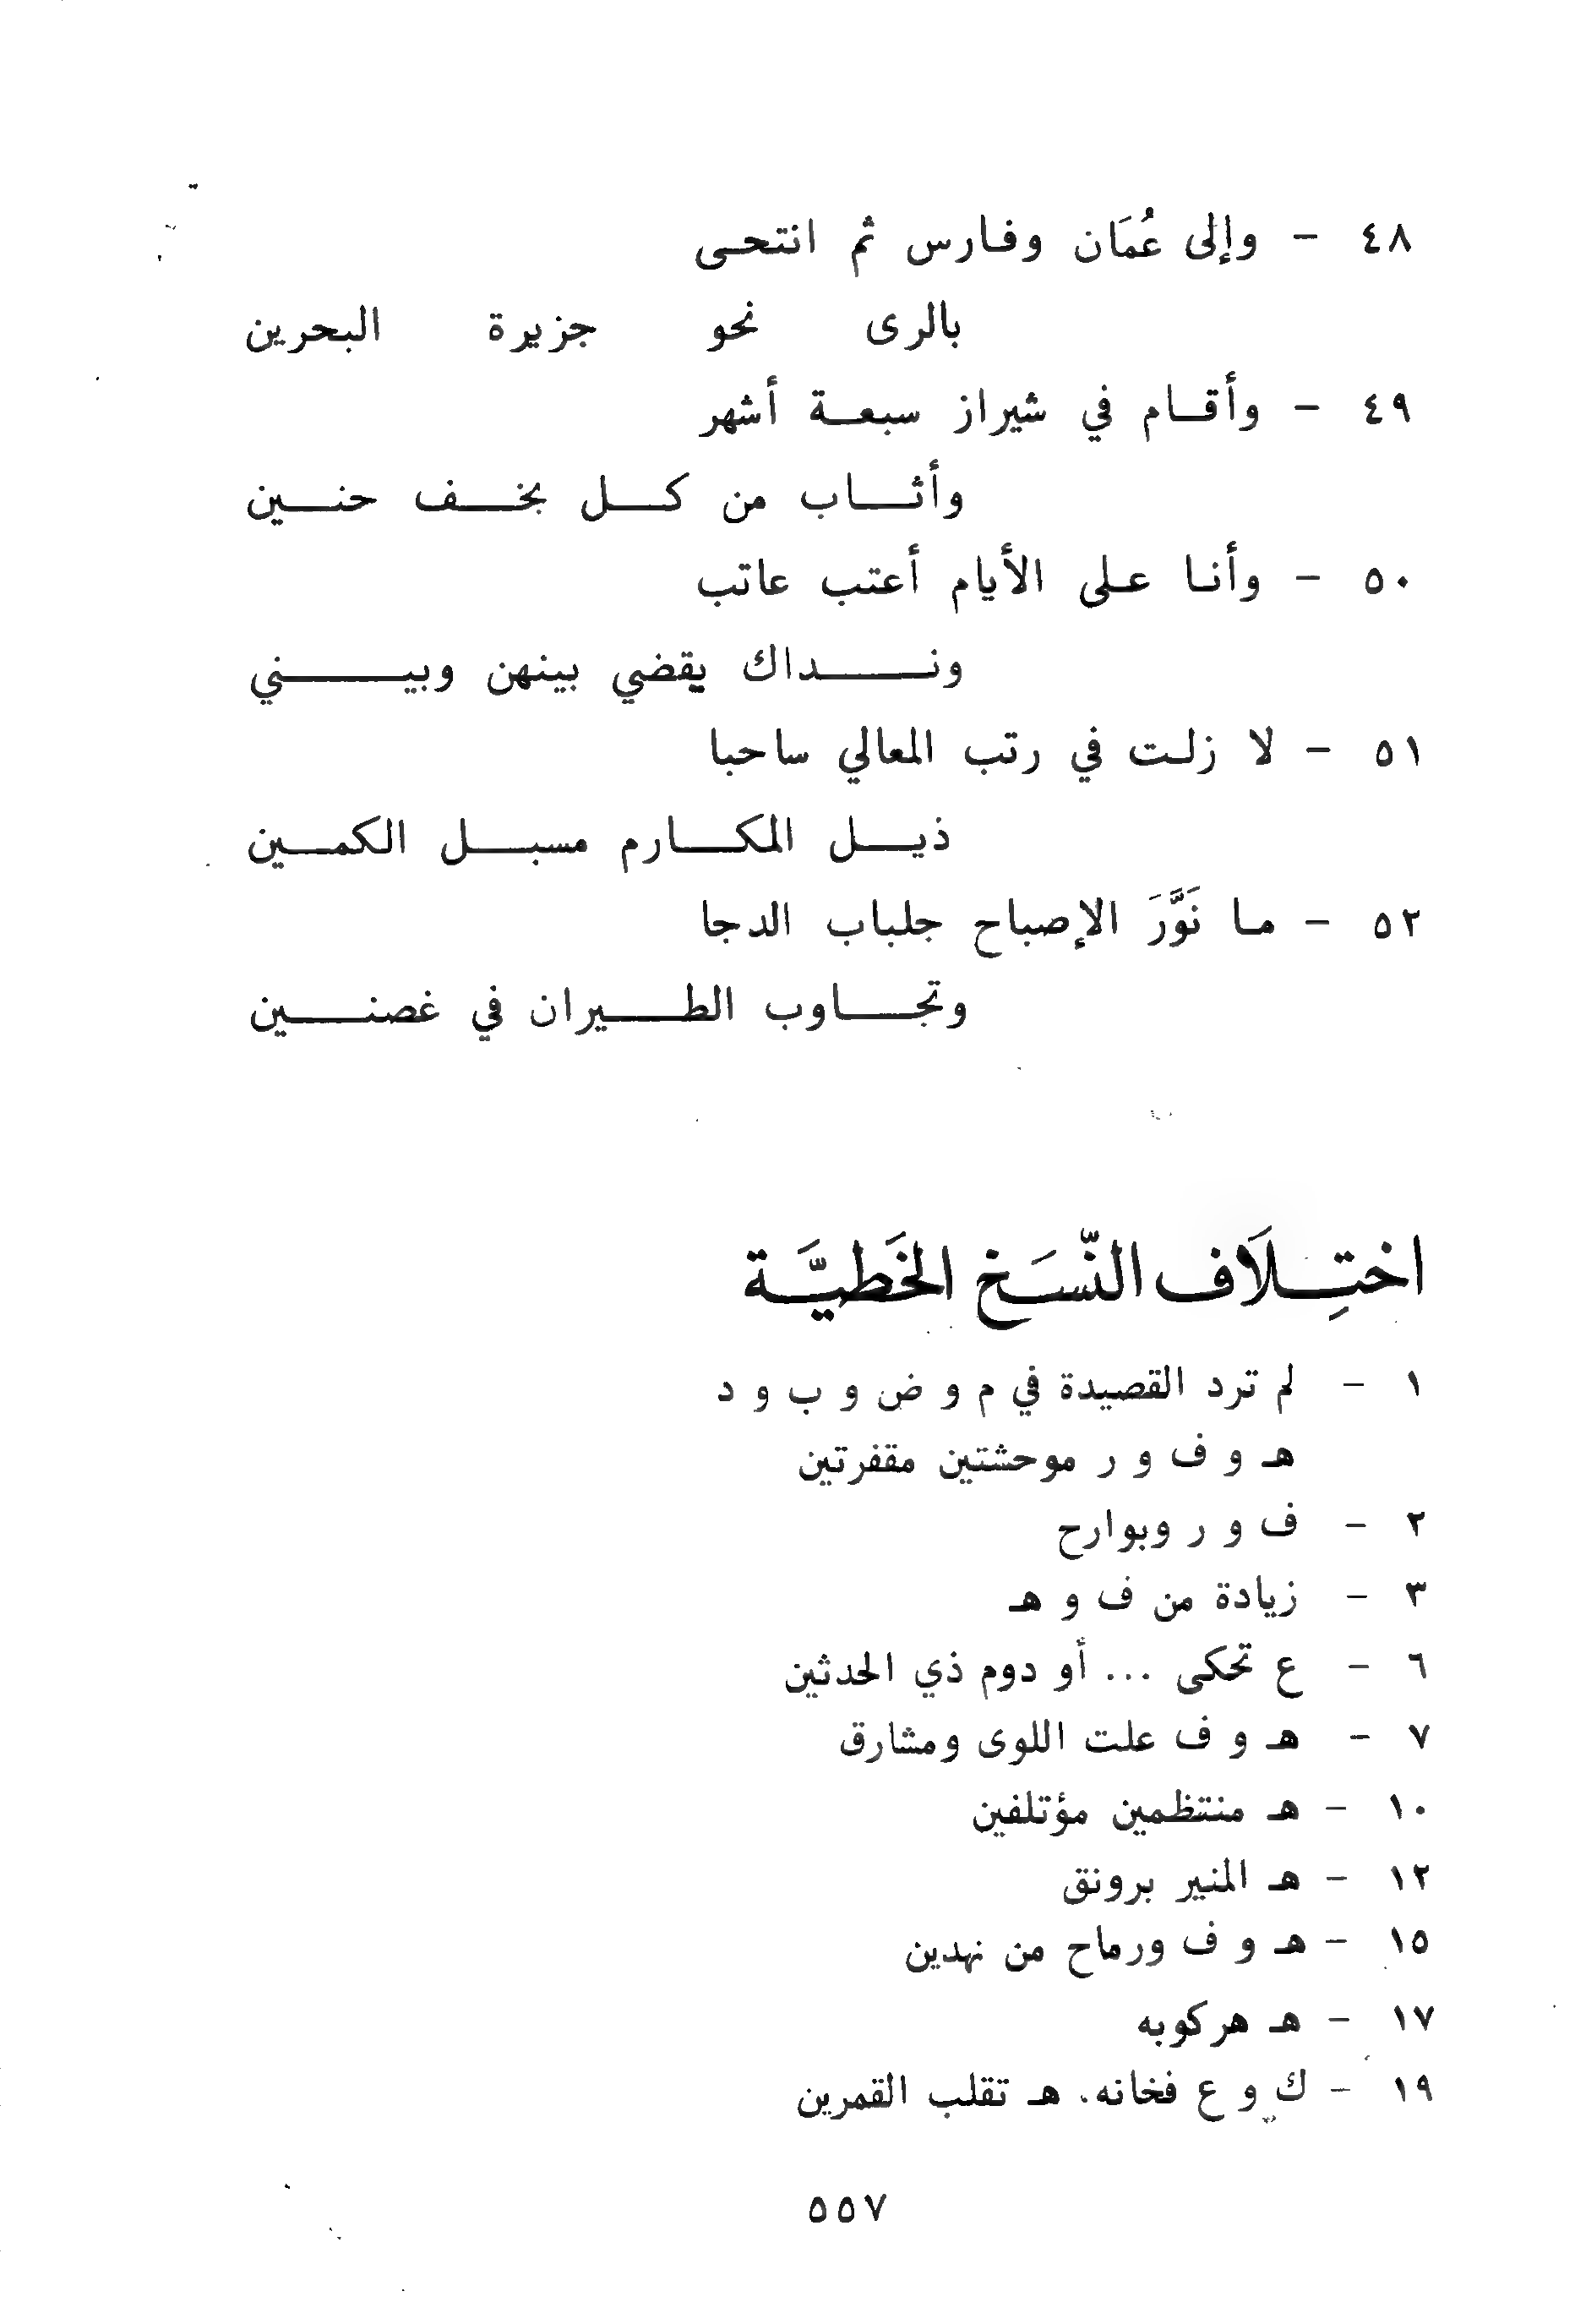 ٤٨ - وإلى عُمَان وفارس ثم انتحى
بالرى نحو جزيرة البحرين
٤٩ - وأقام في شيراز سبعة أشهر
وأثاب من كل بخف حنين
٥٠ - وأنا على الأيام أعتب عاتب
ونداك يقضي بينهن وبيني
٥١ - لا زلت في رتب المعالي ساحبا
ذيل المكارم مسبل الكمين
٥٢ - ما نَوَّرَ الإصباح جلباب الدجا
وتجاوب الطيران في غصنين
اختِلَاف النّسَخ الخَطيَّة
١ - لم ترد القصيدة في م و ض و ب و د
هـ و ف و ر موحشتين مقفرتين
٢ - ف و ر وبوارح
٣ - زيادة من ف و هـ
٦ - ع تحكى ... أو دوم ذي الحدثين
٧ - هـ و ف علت اللوى ومشارق
١٠ - هـ منتظمين مؤتلفين
١٢ - هـ المنير برونق
١٥ - هـ و ف ورماح من نهدين
١٧ - هـ هركوبه
١٩ - ك و ع فخانه. هـ تقلب القمرين
٥٥٧